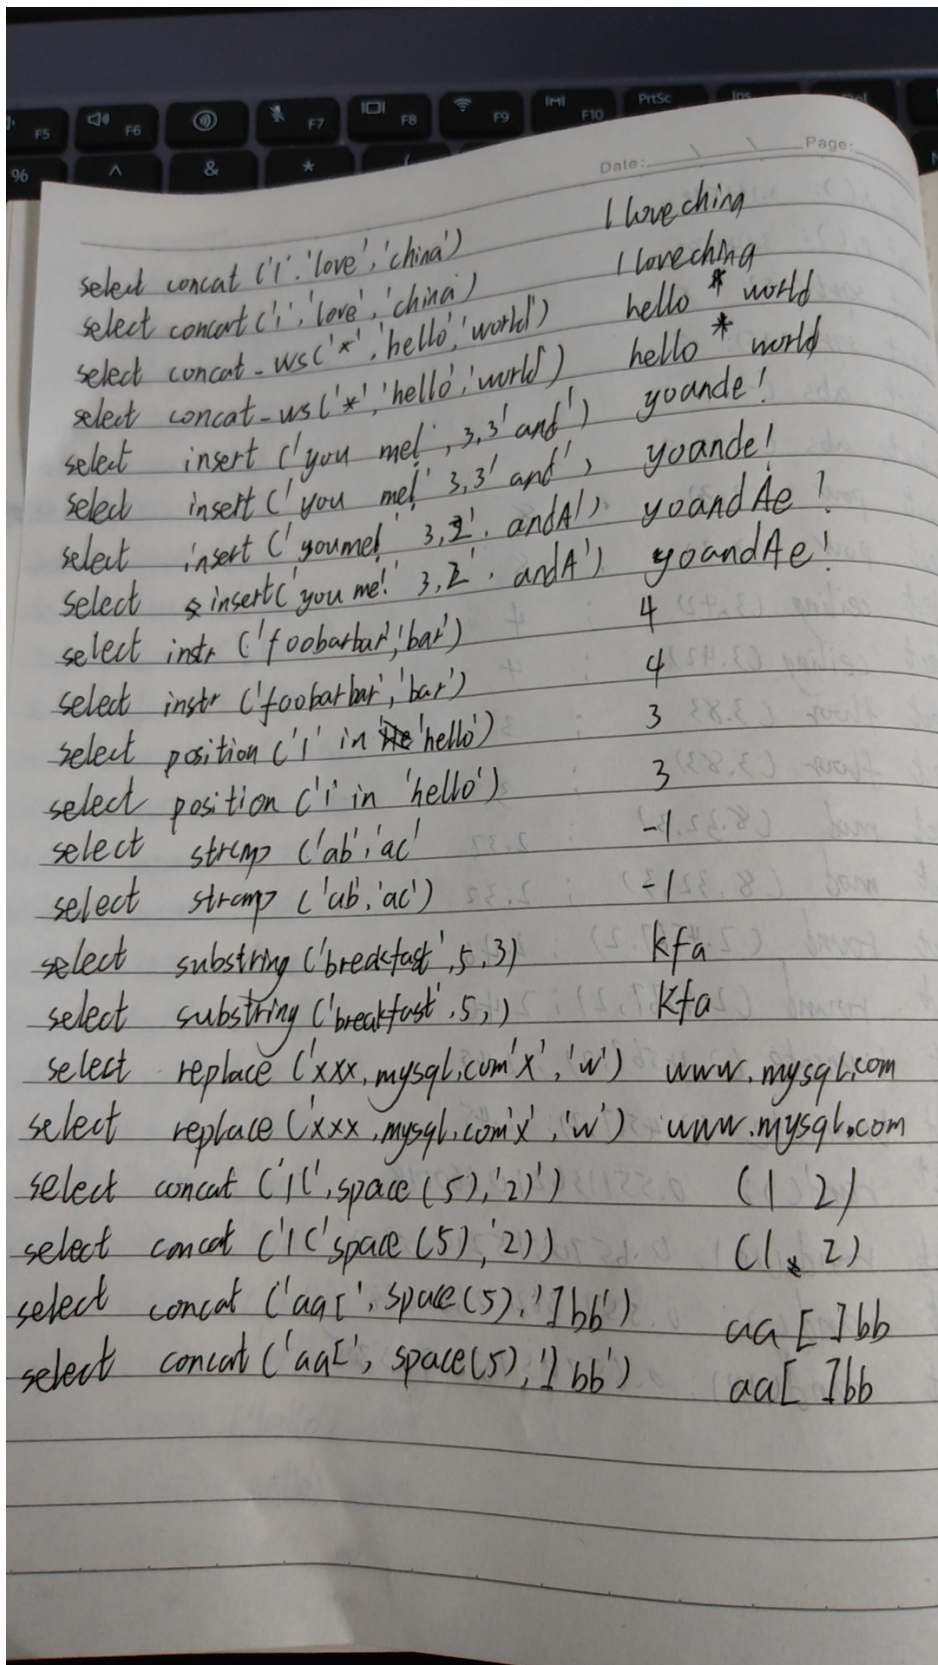 F5 F6 F7 F8 F9 F10 PrtSc Ins
% ^ & * (
Date: \ \ Page:
select concat ('I'.'love','china') I love china
select concat ('i','love','china') I love china
select concat_ws('*','hello','world') hello * world
select concat_ws('*','hello','world') hello * world
select insert ('you me!', 3,3'and') yoande!
select insert ('you me!' 3,3' and') yoande!
select insert ('youme!' 3,2'. andA'). yoandAe!
select insert('you me!' 3,2'. andA') yoandAe!
select instr ('foobarbar','bar') 4
select instr ('foobarbar','bar') 4
select position ('l' in 'hello') 3
select position ('i' in 'hello') 3
select strcmp ('ab','ac' -1
select strcmp ('ab','ac') -1
select substring ('breakfast',5,3) kfa
select substring ('breakfast',5,) kfa
select replace ('xxx.mysql.com'x','w') www.mysql.com
select replace ('xxx.mysql.com'x','w') www.mysql.com
select concat ('1(',space(5),'2)') (1 2)
select concat ('1('space(5),'2)) (1 2)
select concat ('aa[',space(5),']bb') aa[ ]bb
select concat ('aa[', space(5),']bb') aa[ ]bb